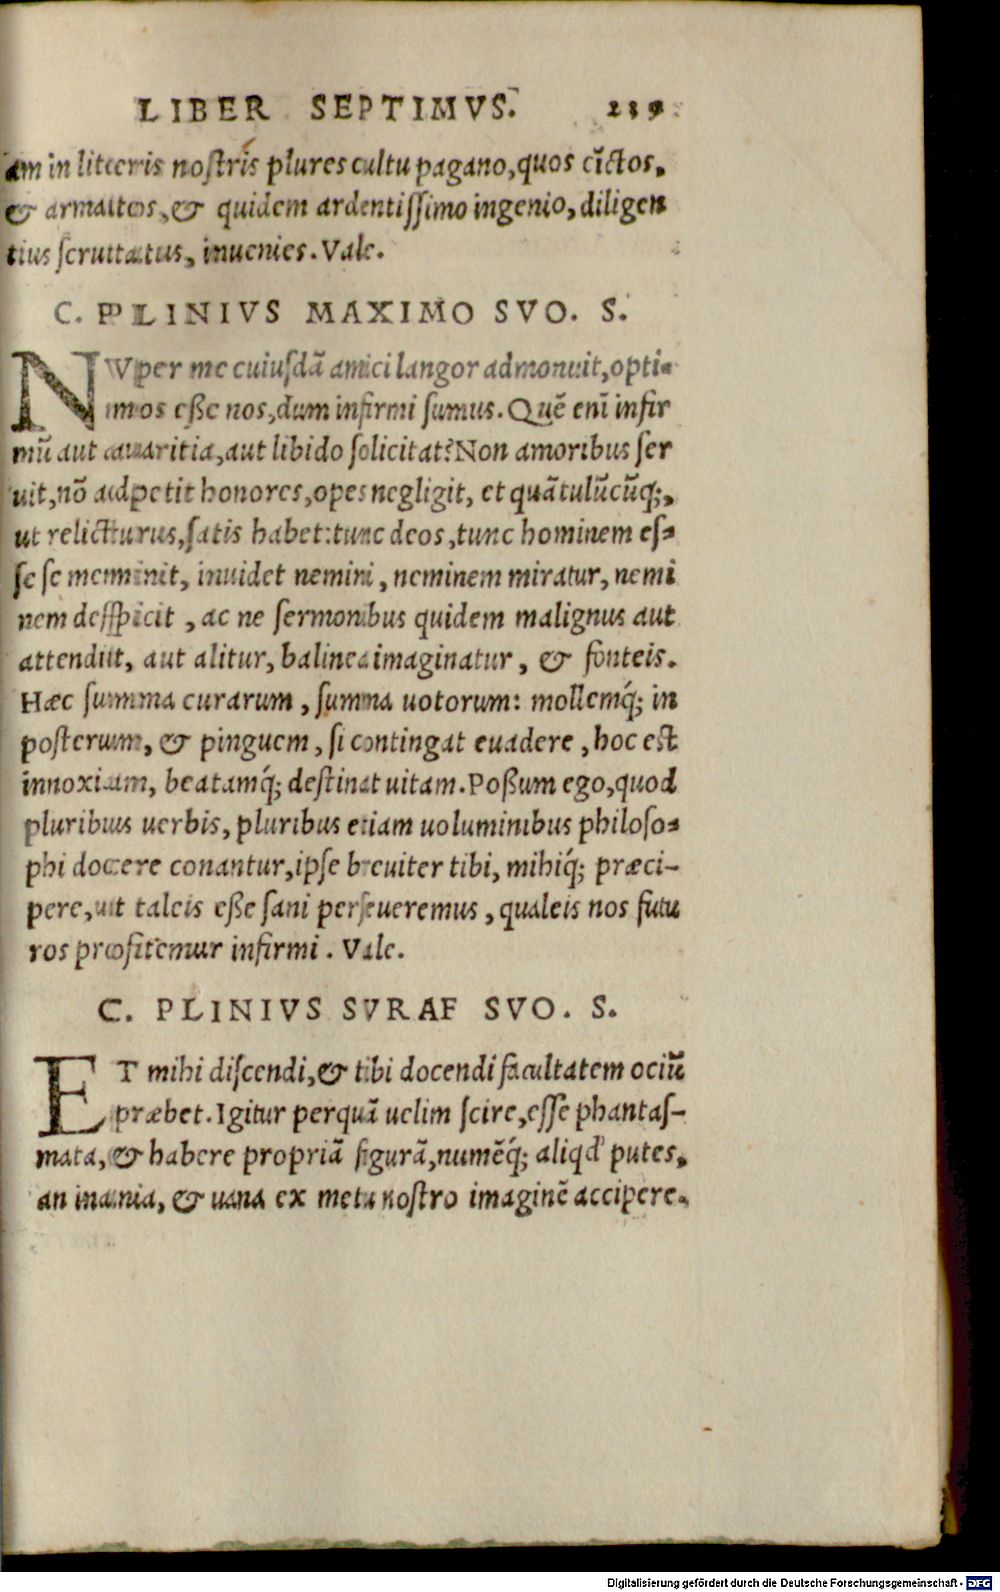 LIBER SEPTIMVS. 239
am in litteris nostris plures cultu pagano, quos cĩctos,
& armatos, & quidem ardentissimo ingenio, diligen
tius scrutatus, inuenies. Vale.
C. PLINIVS MAXIMO SVO. S.
NVper me cuiusdã amici langor admonuit, opti-
mos eße nos, dum infirmi sumus. Quẽ enĩ infir
mũ aut auaritia, aut libido solicitat? Non amoribus ser
uit, nõ adpetit honores, opes negligit, et quãtulũcũq;,
ut relicturus, satis habet: tunc deos, tunc hominem es-
se se meminit, inuidet nemini, neminem miratur, nemi
nem despicit, ac ne sermonibus quidem malignus aut
attendit, aut alitur, balinea imaginatur, & fonteis.
Hæc summa curarum, summa uotorum: mollemq́; in
posterum, & pinguem, si contingat euadere, hoc est
innoxiam, beatamq́; destinat uitam. Poßum ego, quod
pluribus uerbis, pluribus etiam uoluminibus philoso-
phi docere conantur, ipse breuiter tibi, mihiq́; præci-
pere, ut taleis eße sani perseueremus, qualeis nos futu
ros profitemur infirmi. Vale.
C. PLINIVS SVRAE SVO. S.
ET mihi discendi, & tibi docendi facultatem ociũ
præbet. Igitur perquã uelim scire, esse phantas-
mata, & habere propriã figurã, numẽq́; aliqd' putes,
an inania, & uana ex metu nostro imaginẽ accipere.
Digitalisierung gefördert durch die Deutsche Forschungsgemeinschaft - DFG